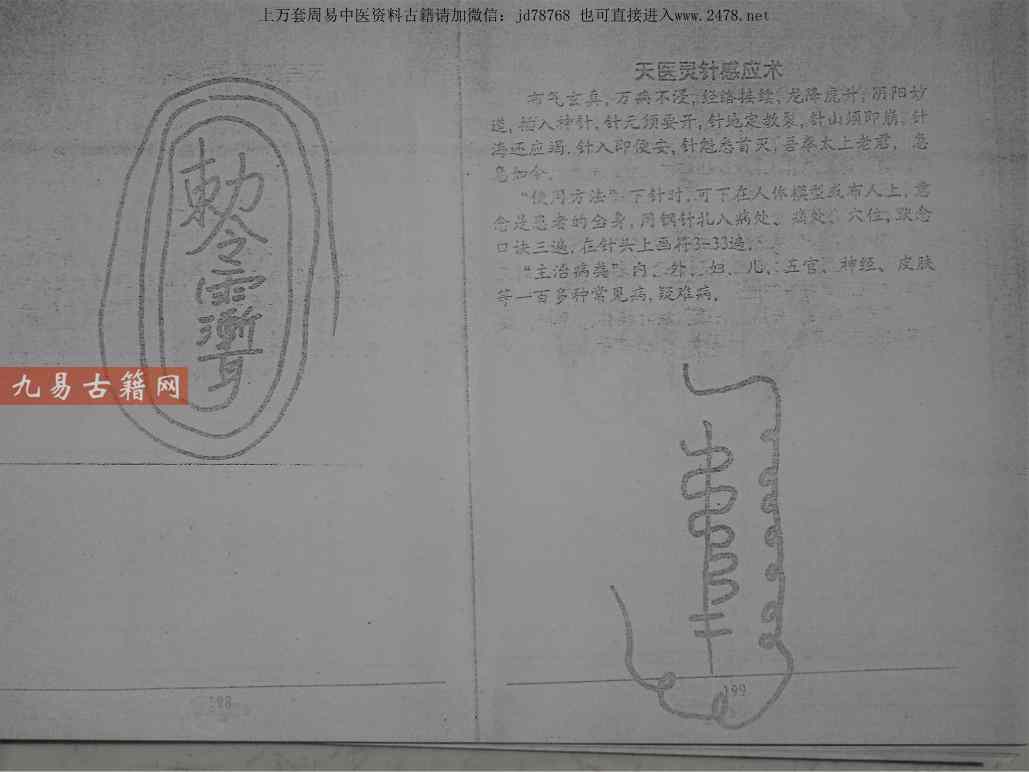 上万套周易中医资料古籍请加微信: jd78768 也可直接进入www.2478.net
敕
令
雷
渐
耳
九易古籍网
198
天医灵针感应术
布气玄真,万病不浸,经络接续,龙降虎升,阴阳妙
道,插入神针,针元须要开,针地定教裂,针山须即崩,针
海还应竭,针入即使安,针魁悉首灭,吾奉太上老君,急
急如令。
“使用方法”下针时,可下在人体模型或布人上,意
念是患者的全身,用钢针扎入病处、痛处、穴位,默念
口诀三遍,在针头上画符3-33遍。
“主治病类”内、外、妇、儿、五官、神经、皮肤
等一百多种常见病,疑难病。
199